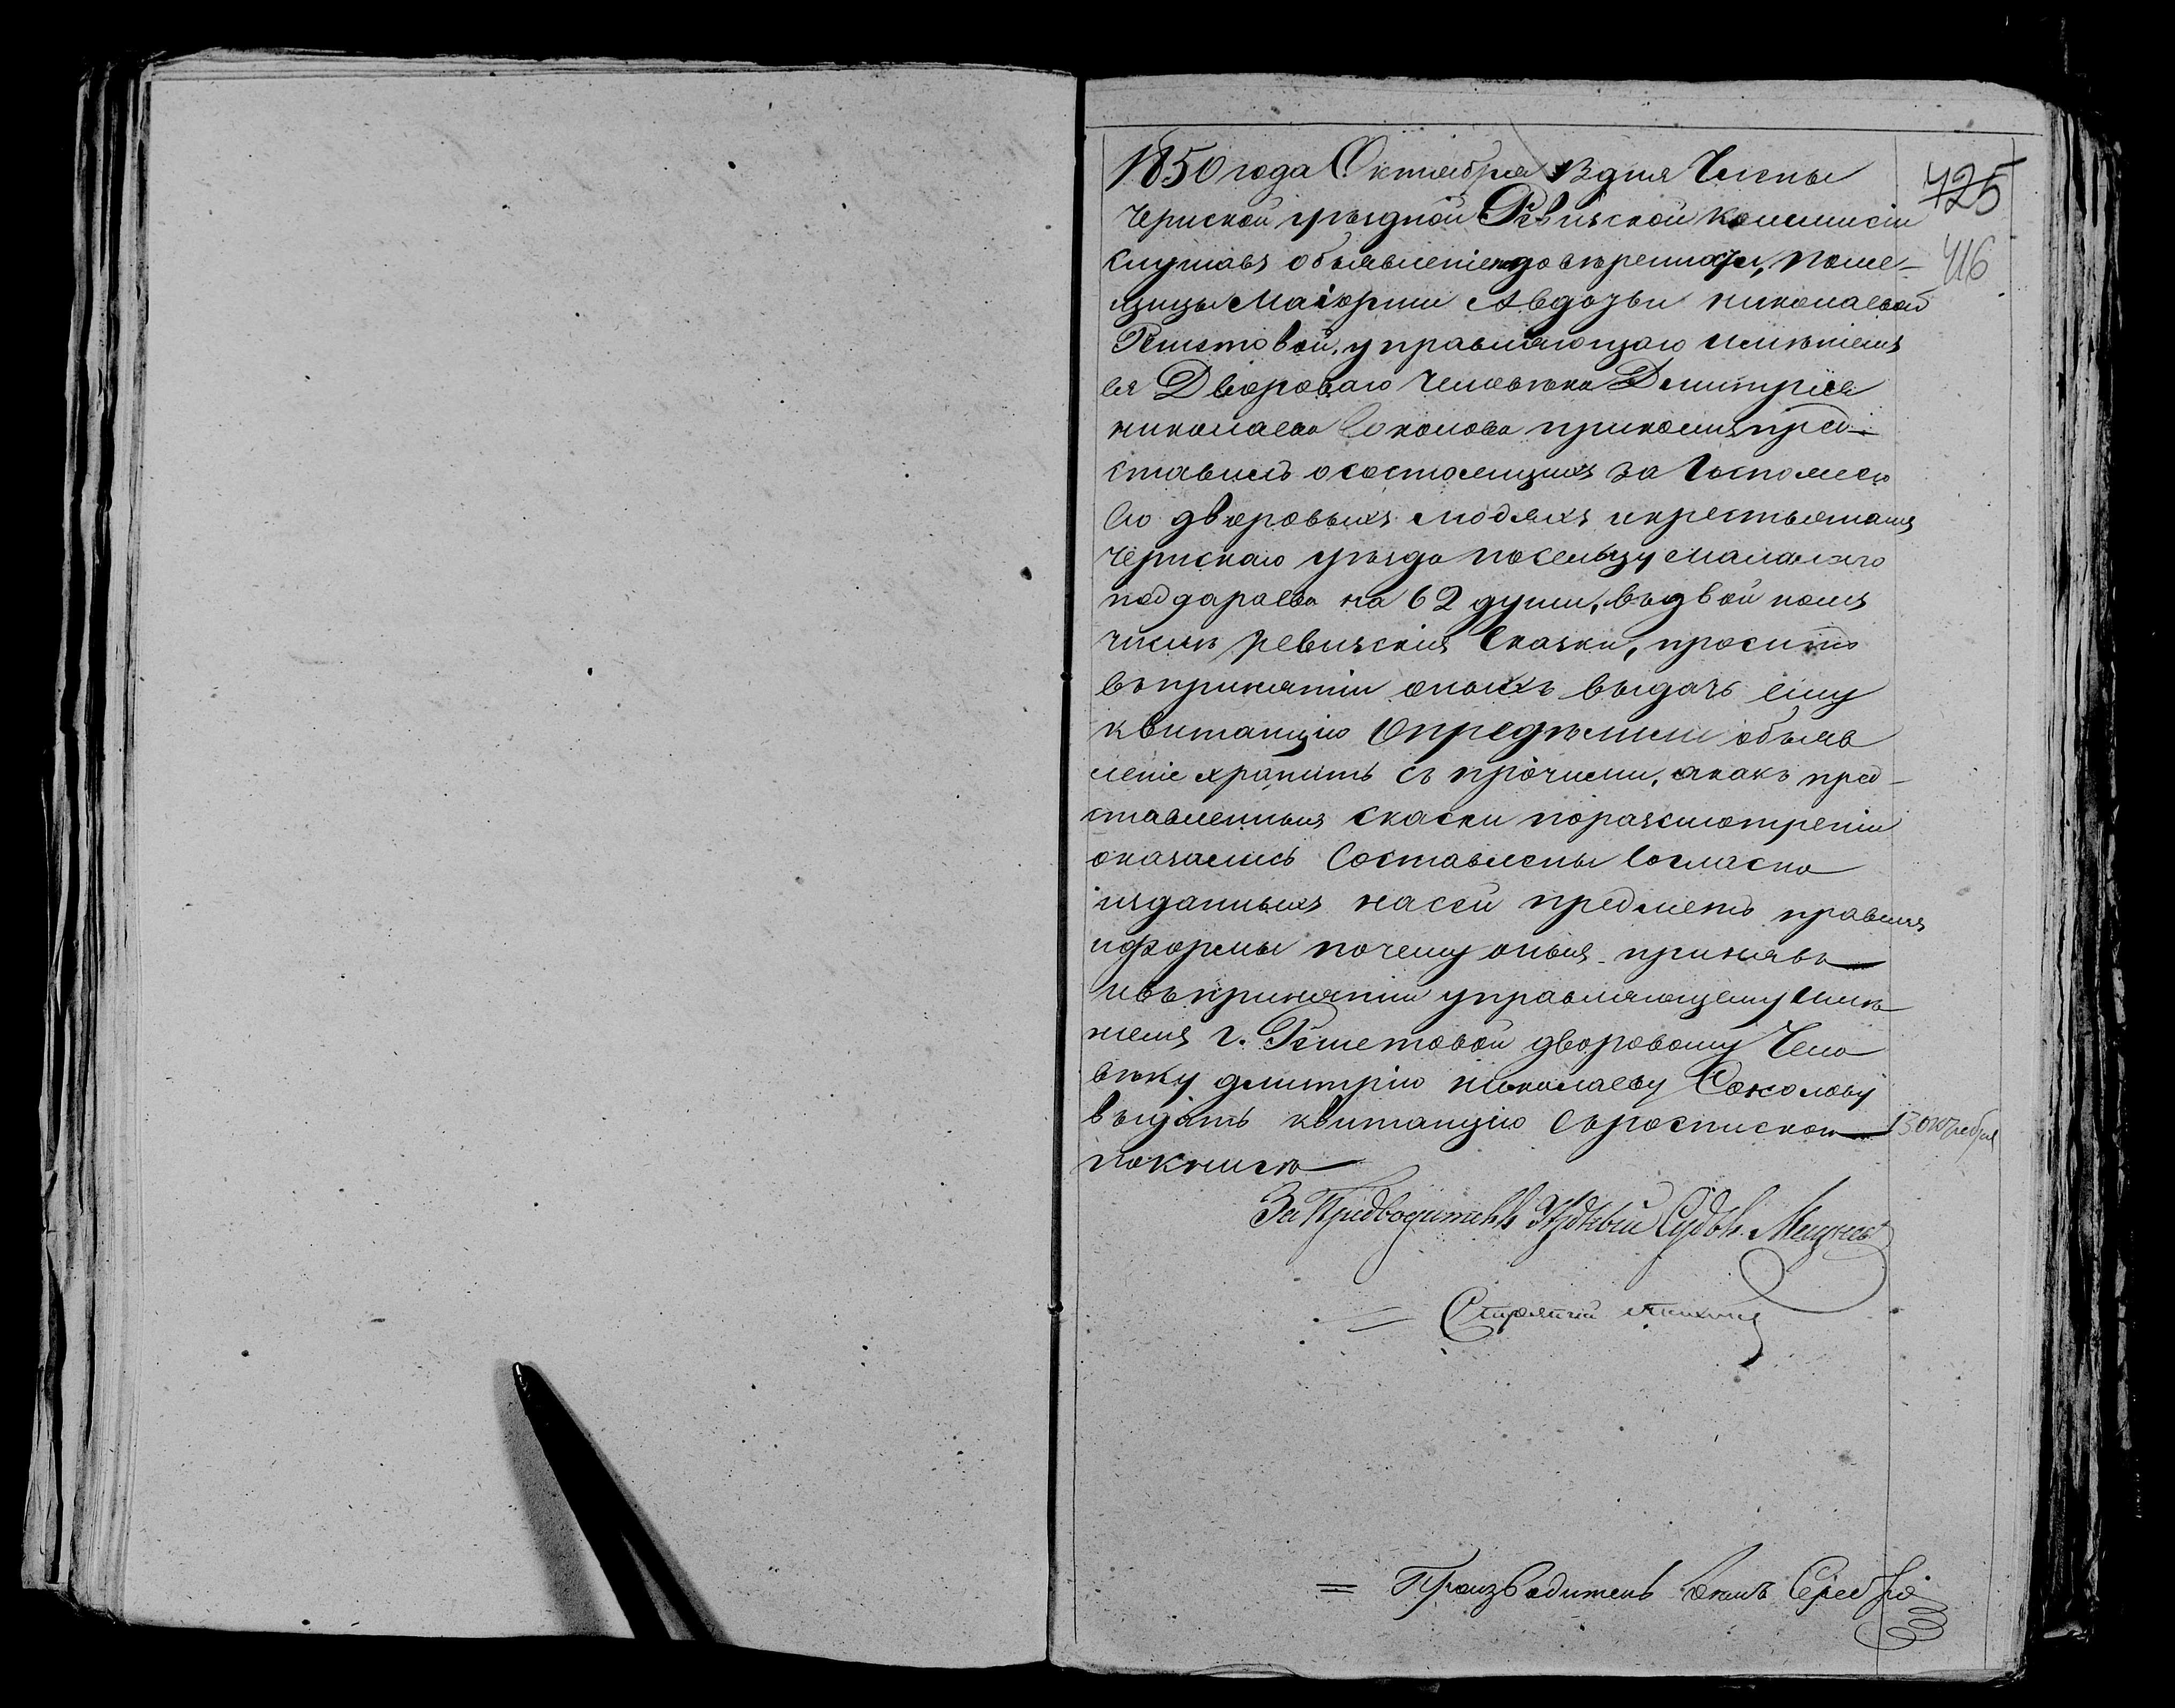 1850 года Октября 13 дня Члены
425
Чернской уѣздной Ревизской коммисіи
416
Слушавъ объявленіе довѣреннаго, поме-
щицы Маіорши Авдотьи николаевой
Решетовой, управляющаго имѣніемъ
ея Двороваго Человѣка Дмитрія
николаева Соколова при коемъ пред-
ставилъ о состоящихъ за Госпожею
его дворовыхъ людяхъ и крестьянахъ
Чернскаго уѣзда по сельцу
на 62 души, въ двойномъ
числѣ ревизскія Сказки, проситъ
въ принятіи оныхъ выдачь ему
квитанцію Опредѣлили объяв
леніе хранить съ прочими, а какъ пред-
ставленныя скаски по разсмотреніи
оказались Составлены Согласно
изданныхъ на сей предметъ правилъ
и формы почему оныя принявъ
и въ принятіи управляющему имѣ
ніемъ г. Решетовой дворовому Чело
вѣку дмитрію николаеву Соколову
выдать квитанцію съ роспискою
13 октября
по книгѣ
За Предводителя Уѣздный Судья
= Стряпчій
= Производитель